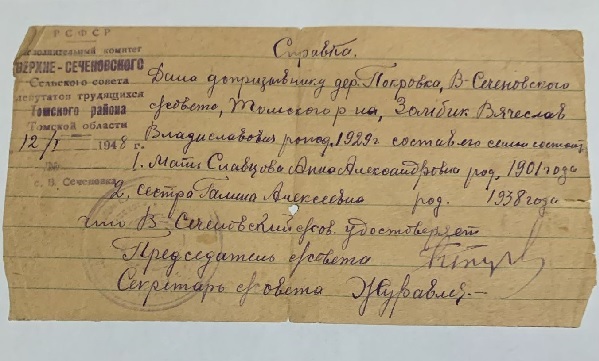 РСФСР
исполнительный комитет
ВЕРХНЕ-СЕЧЕНОВСКОГО
Сельского совета
депутатов трудящихся
Томского района
Томской области
12/I 1948 г.
с. В. Сеченовка
Справка.
Дана допризывнику дер. Покровка, В-Сеченовского
с/совета, Томского р-на, Замбик Вячеслав
Владиславович рожд. 1929г состав его семьи состоит
1. Мать Славцова Анна Александровна род. 1901 года
2. сестра Галина Алексеевна род. 1938 года
что В-Сеченовский с/сов. удостоверяет
Председатель с/совета
Секретарь с/совета Журавлев